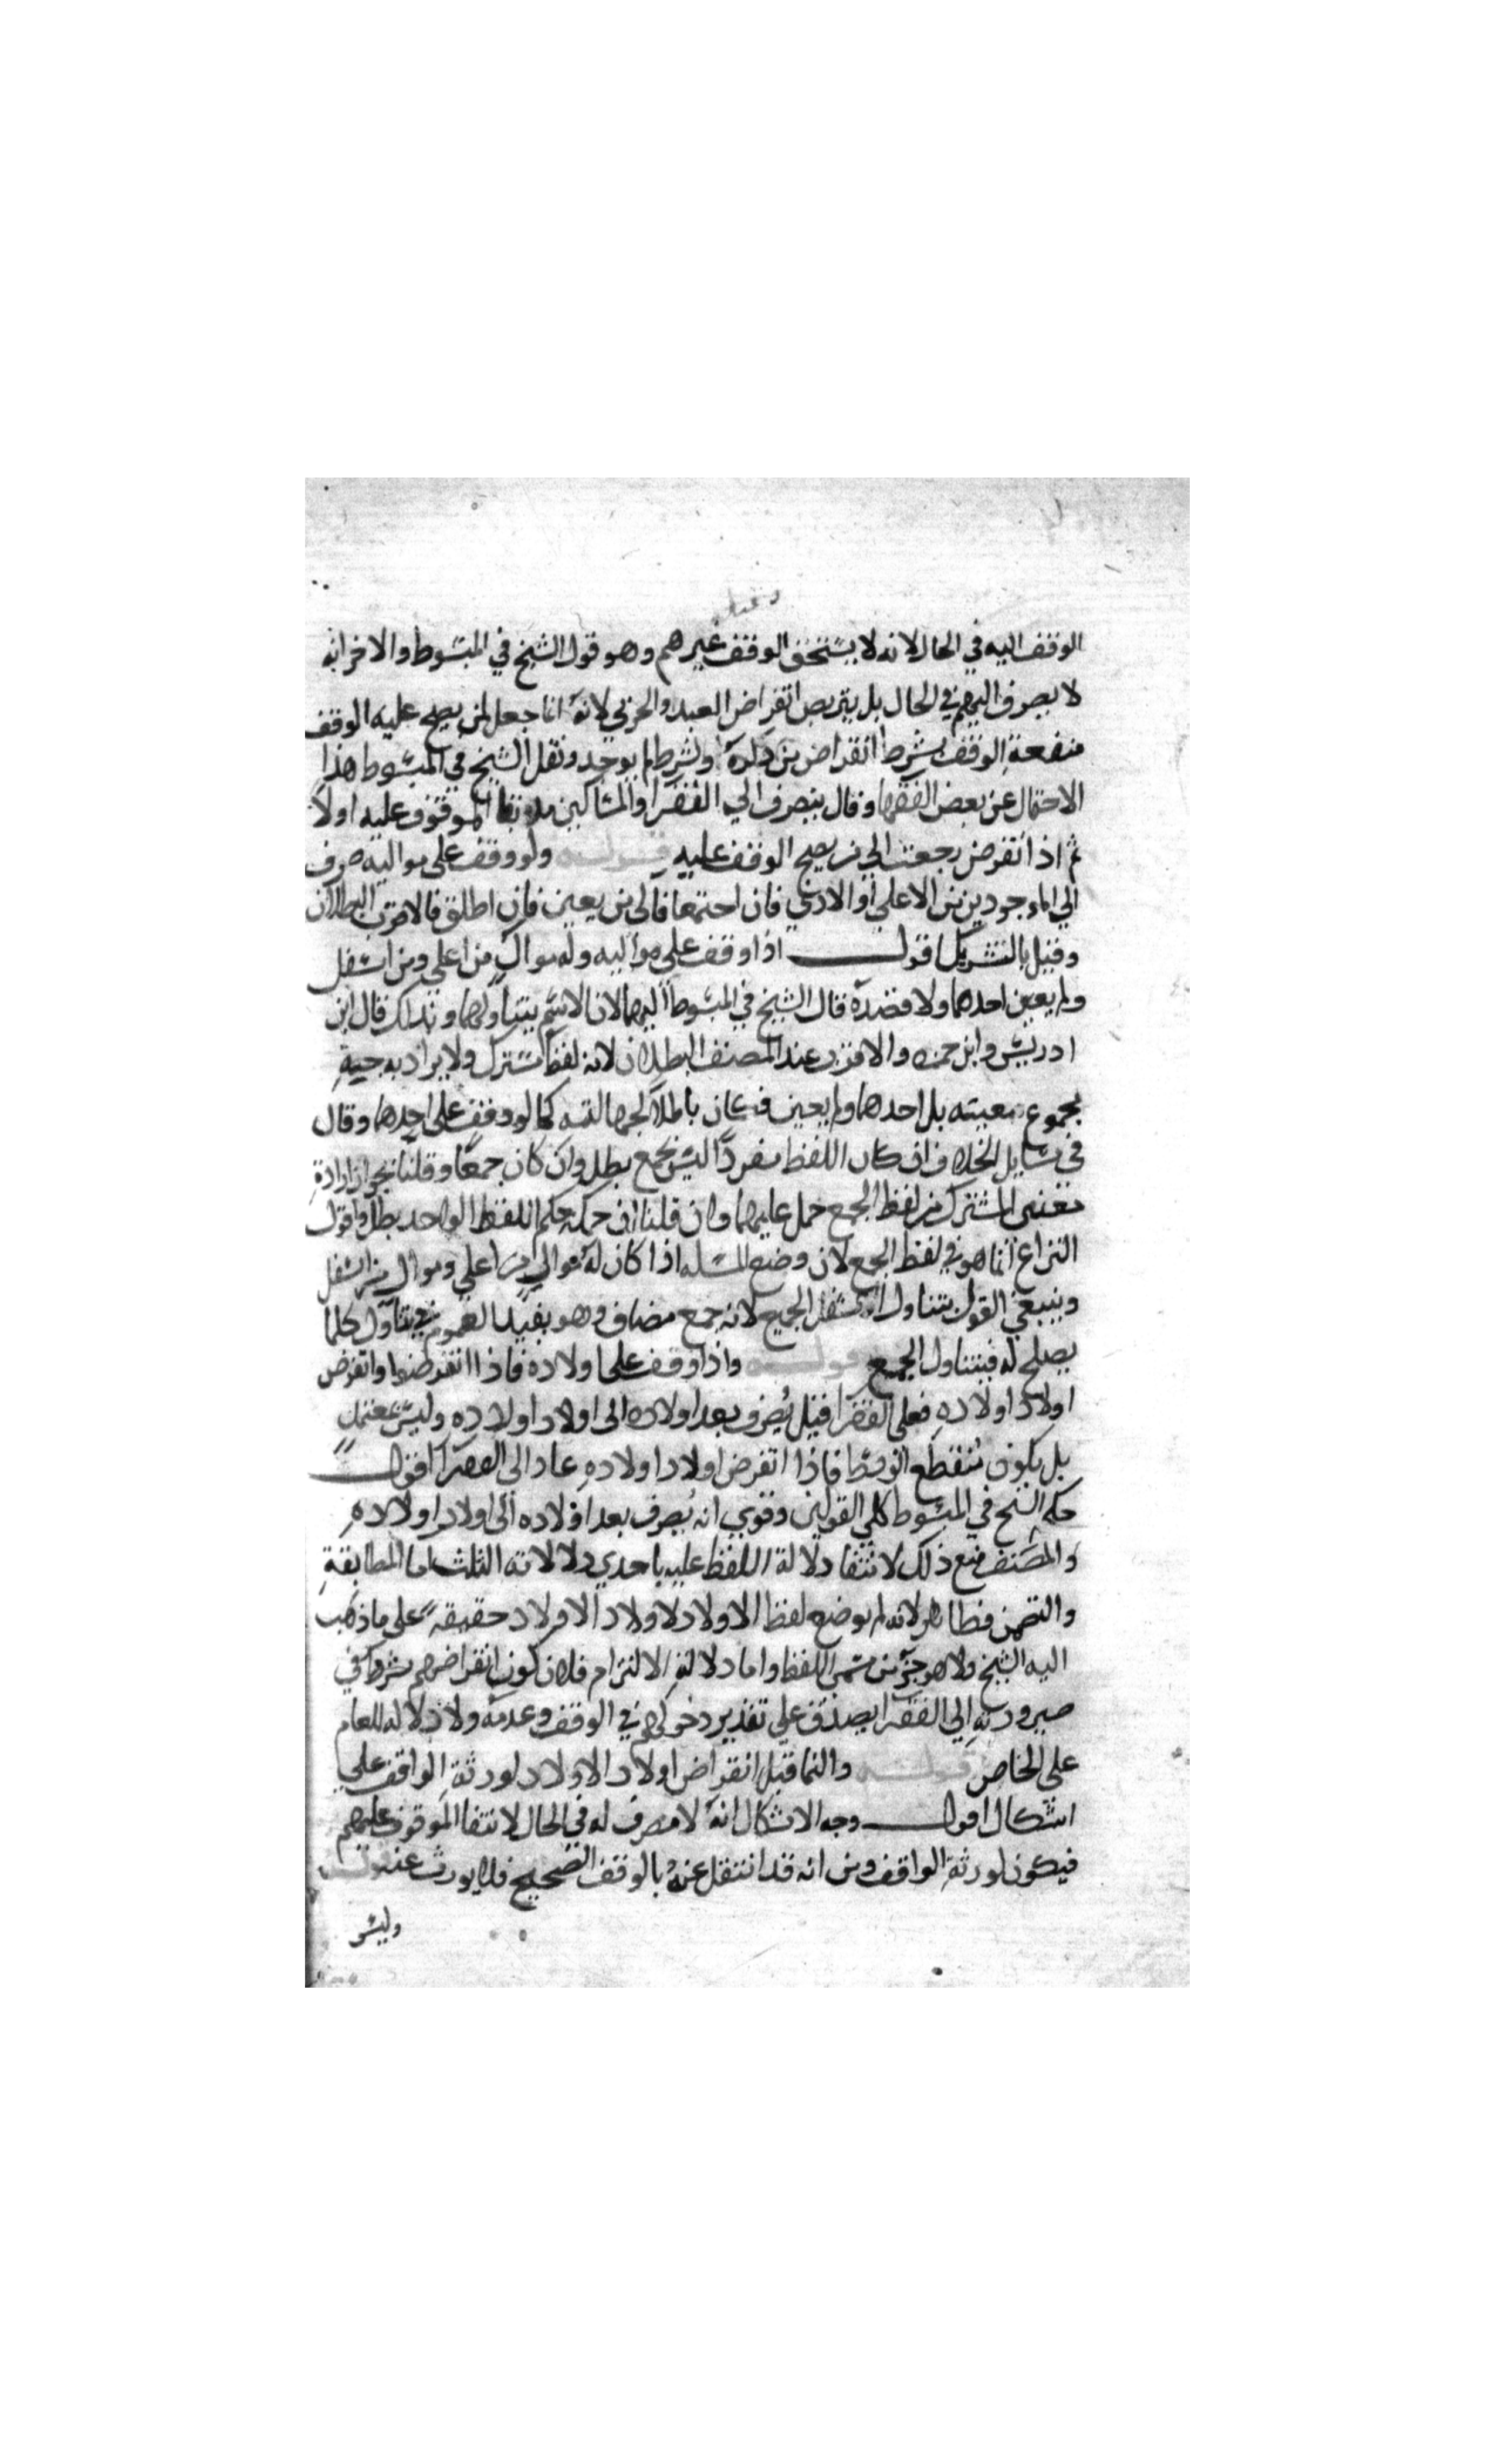 الوقف اليه في الحال لانه لا يستحق الوقف غيرهم وهو قول الشيخ في المبسوط والاخر انه
لا يصرف اليهم في الحال بل يتربص انقراض العبد والحربي لانه انما جعل لمن يصح عليه الوقف
منفعة الوقف بشرط انقراض من ذكره والشرط لم يوجد ونقل الشيخ في المبسوط هذا
الاحتمال عن بعض الفقها وقال ينصرف الي الفقرا والمساكين مدة بقا الموقوف عليه اولا
ثم اذا انقرض رجعت الي من يصح الوقف عليه قوله ولو وقف على مواليه صرف
الي الموجودين من الاعلي او الادني فان اجتمعا فالي من يعين فان اطلق فالاقرب البطلان
وقيل بالتشريك اقول اذا وقف علي مواليه وله موال من اعلي ومن اسفل
ولم يعين احدهما ولا قصده قال الشيخ في المبسوط اليهما لان الاسم يتناولهما وبذلك قال ابن
ادريس وابن حمزه والاقرب عند المصنف البطلان لانه لفظ مشترك ولا يراد به
مجموع معنييه بل احدهما ولم يعين فكان باطلا لجهالته كما لو وقف على احدهما وقال
في مسايل الخلاف ان كان اللفظ مفردا ليس بجمع بطل وان كان جمعا وقلنا بجواز ارادة
معنيي المشترك من لفظ الجمع حمل عليهما وان قلنا ان حكمه حكم اللفظ الواحد بطل واقول
النزاع انما هو في لفظ الجمع لان وضع المسله اذا كان له موالي من اعلي وموال من اسفل
وينبغي القول بتناول الجميع لانه جمع مضاف وهو يفيد العموم فيتناول كلما
يصلح له فيتناول الجمع قوله واذا وقف على اولاده فاذا انقرضوا وانقرض
اولاد اولاده فعلي الفقرا قيل يصرف بعد اولاده الى اولاد اولاده وليس بمعتمد
بل يكون منقطع الوسط فاذا انقرض اولاد اولاده عاد الى الفقرا اقول
حكى الشيخ في المبسوط كلي القولين وقوي انه يصرف بعد اولاده الى اولاد اولاده
والمصنف منع ذلك لانتفا دلالة اللفظ عليه باحدي دلالاته الثلث اما المطابقة
والتضمن فظاهر لانه لم يوضع لفظ الاولاد لاولاد الاولاد حقيقة على ما ذهب
اليه الشيخ ولا هو جزء من مسمى اللفظ واما دلالة الالتزام فلان كون انقراضهم شرطا في
صيرورته الي الفقرا يصدق علي تقدير دخولهم في الوقف وعدمه ولا دلاله للعام
على الخاص قوله والنما قبل انقراض اولاد الاولاد لورثة الواقف علي
اشكال اقول وجه الاشكال انه لا مصرف له في الحال لانتفا الموقوف عليهم
فيكون لورثة الواقف ومن انه قد انتقل عنه بالوقف الصحيح فلا يورث عنه قوله
وليس